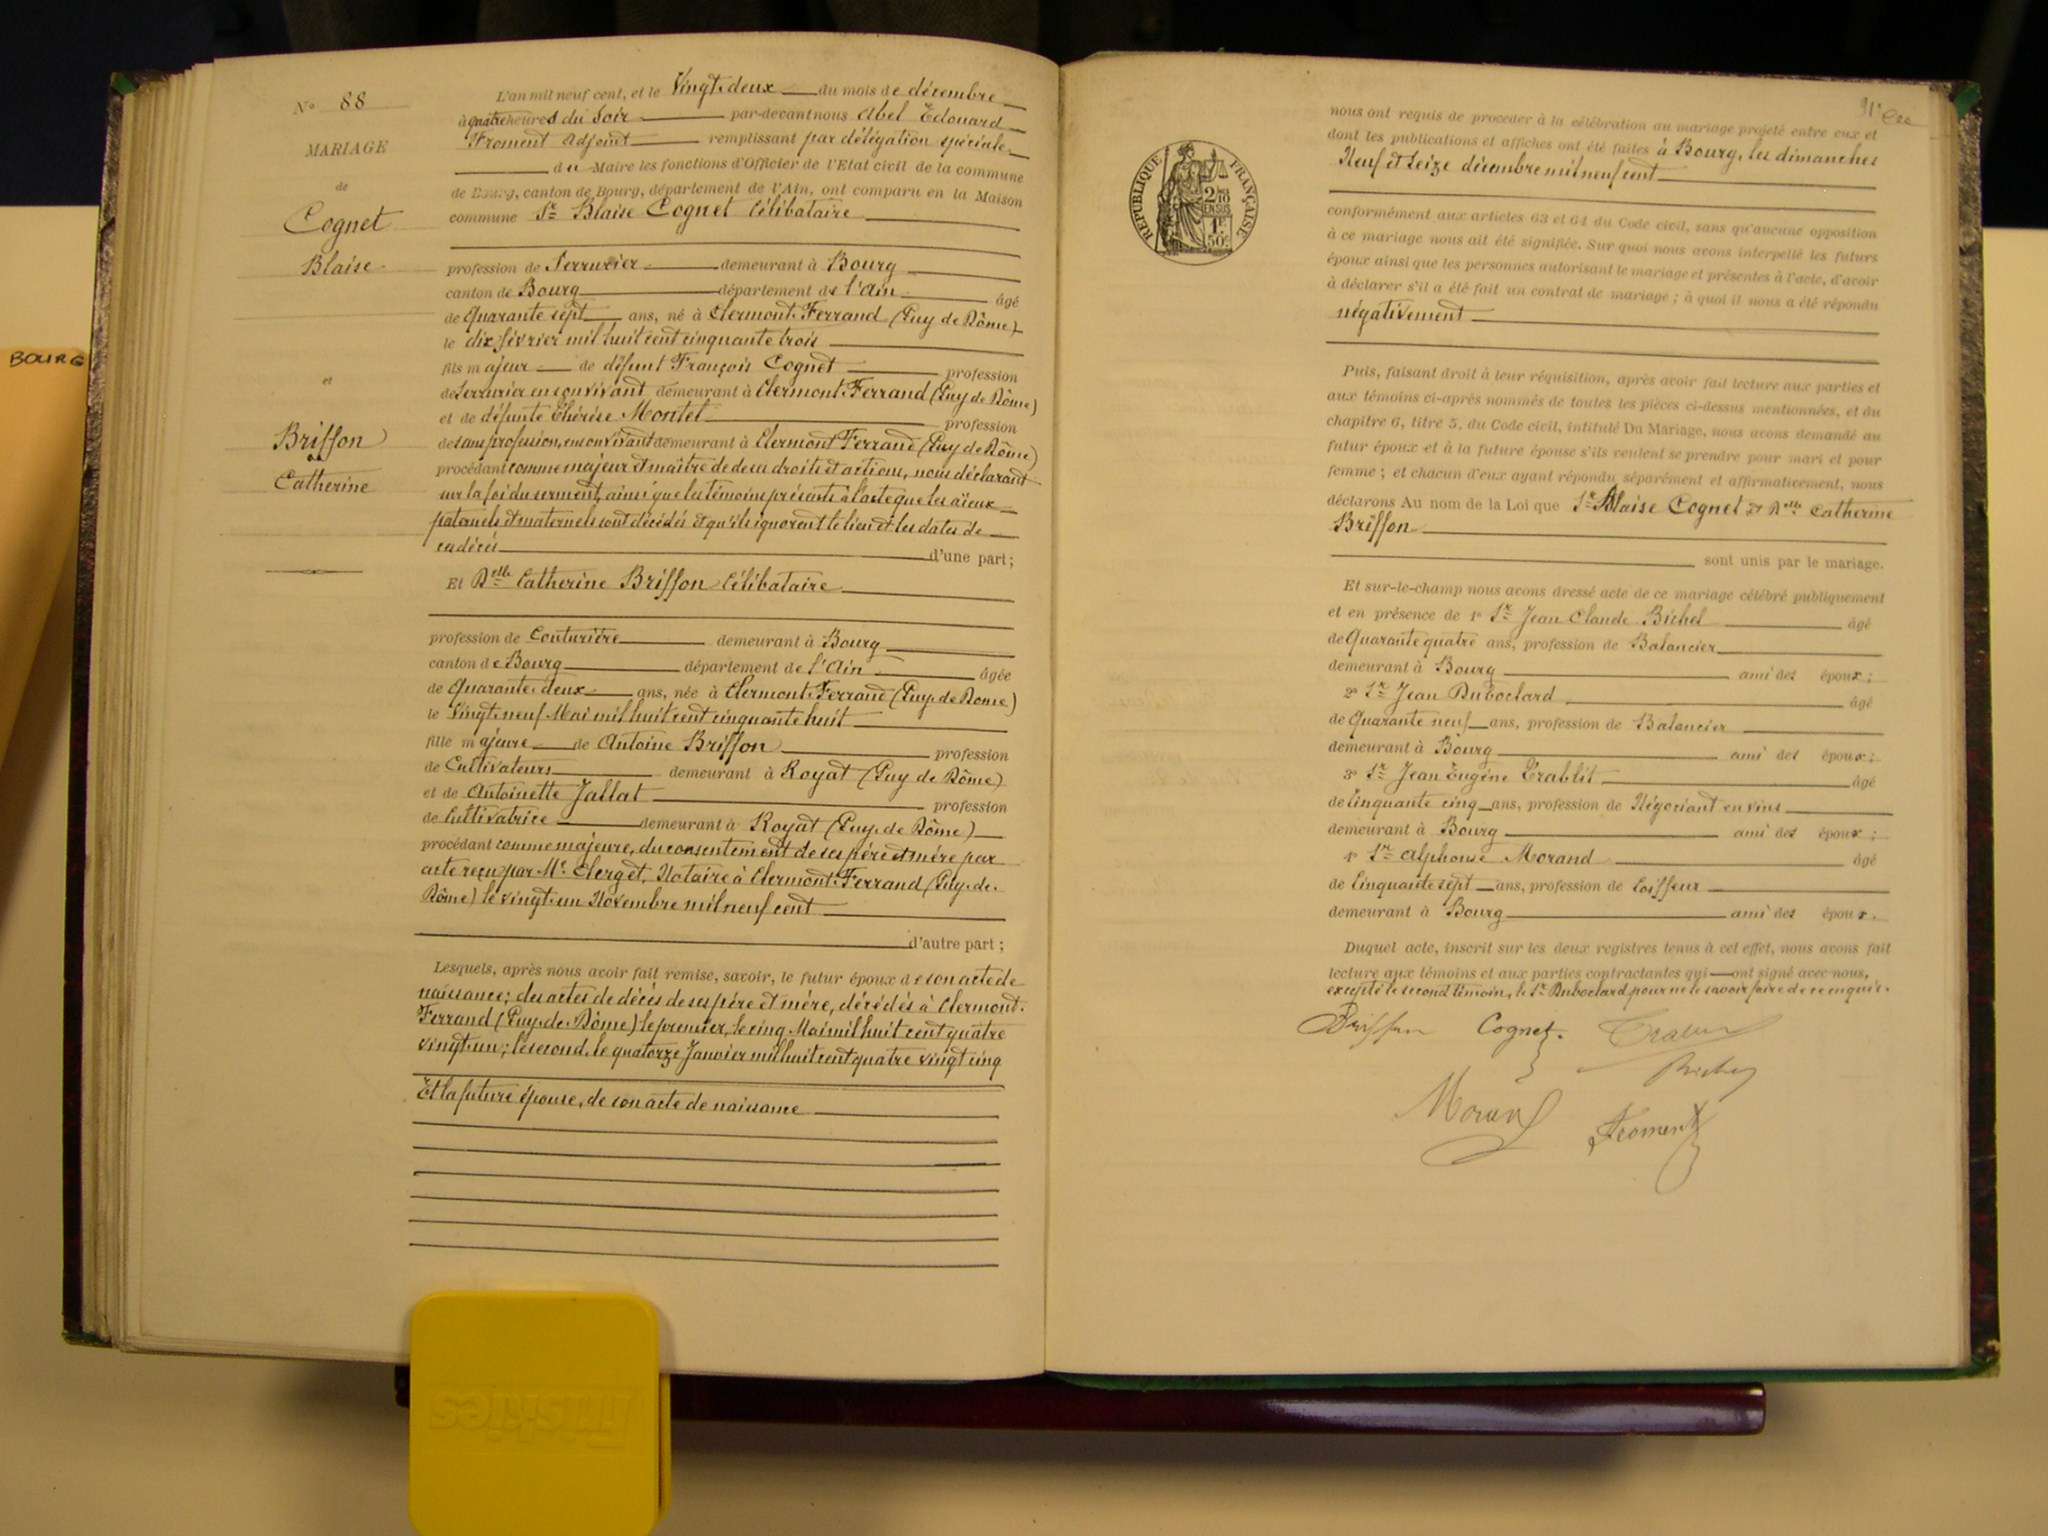 BOURG
N° 88
MARIAGE
de
Cognet
Blaise
et
Briffon
Catherine
L'an mil neuf cent, et le Vingt-deux du mois de décembre
à quatre heures du soir par-devant nous Abel Edouard
Froment Adjoint remplissant par délégation spéciale
du Maire les fonctions d'Officier de l'Etat civil de la commune
de Bourg, canton de Bourg, département de l'Ain, ont comparu en la Maison
commune Sr Blaise Cognet Célibataire
profession de Serrurier demeurant à Bourg
canton de Bourg département de l'Ain âgé
de Quarante sept ans, né à Clermont-Ferrand (Puy de Dôme)
le dix février mil huit cent cinquante trois
fils majeur de défunt François Cognet profession
de Serrurier en son vivant demeurant à Clermont-Ferrand (Puy de Dôme)
et de défunte Thérèse Montel profession
de sans profession, en son vivant demeurant à Clermont Ferrand (Puy de Dôme)
procédant comme majeur et maître de ses droits et actions, nous déclarant
sur la foi du serment, ainsi que les témoins présents à l'acte que les aïeux
paternels et maternels sont décédés et qu'ils ignorent le lieu et les dates de
ces décès d'une part;
Et Delle Catherine Briffon Célibataire
profession de Couturière demeurant à Bourg
canton de Bourg département de l'Ain âgée
de Quarante-deux ans, née à Clermont-Ferrand (Puy-de Dome)
le Vingt-neuf Mai mil huit cent cinquante huit
fille majeure de Antoine Briffon profession
de Cultivateurs demeurant à Royat (Puy de Dôme)
et de Antoinette Jallat profession
de Cultivatrice demeurant à Royat (Puy-de Dôme)
procédant comme majeure, du consentement de ses père et mère par
acte reçu par Me Clerget, Notaire à Clermont-Ferrand (Puy-de-
Dôme) le vingt-un Novembre mil neuf cent
d'autre part;
Lesquels, après nous avoir fait remise, savoir, le futur époux de son acte de
naissance; des actes de décès de ses père et mère, décédés à Clermont-
Ferrand (Puy-de-Dôme) le premier, le cinq Mai mil huit cent quatre
vingt-un; le second, le quatorze Janvier mil huit cent quatre vingt cinq
Et la future épouse, de son acte de naissance
REPUBLIQUE FRANÇAISE
2/10
EN SUS
1F
50c
nous ont requis de procéder à la célébration du mariage projeté entre eux et
dont les publications et affiches ont été faites à Bourg, les dimanches
Neuf et Seize décembre mil neuf cent
conformément aux articles 63 et 64 du Code civil, sans qu'aucune opposition
à ce mariage nous ait été signifiée. Sur quoi nous avons interpellé les futurs
époux ainsi que les personnes autorisant le mariage et présentes à l'acte, d'avoir
à déclarer s'il a été fait un contrat de mariage; à quoi il nous a été répondu
négativement
Puis, faisant droit à leur réquisition, après avoir fait lecture aux parties et
aux témoins ci-après nommés de toutes les pièces ci-dessus mentionnées, et du
chapitre 6, titre 5, du Code civil, intitulé Du Mariage, nous avons demandé au
futur époux et à la future épouse s'ils veulent se prendre pour mari et pour
femme; et chacun d'eux ayant répondu séparément et affirmativement, nous
déclarons Au nom de la Loi que Sr Blaise Cognet et Delle Catherine
Briffon
sont unis par le mariage.
Et sur-le-champ nous avons dressé acte de ce mariage célébré publiquement
et en présence de 1° Sr Jean Claude Bichel âgé
de Quarante quatre ans, profession de Balancier
demeurant à Bourg ami des époux;
2° Sr Jean Duboclard âgé
de Quarante neuf ans, profession de Balancier
demeurant à Bourg ami des époux;
3° Sr Jean Eugène Trablit âgé
de Cinquante cinq ans, profession de Négociant en vins
demeurant à Bourg ami des époux;
4° Sr Alphonse Morand âgé
de Cinquante sept ans, profession de Coiffeur
demeurant à Bourg ami des époux.
Duquel acte, inscrit sur les deux registres tenus à cet effet, nous avons fait
lecture aux témoins et aux parties contractantes qui ont signé avec nous,
excepté le second témoin, le Sr Duboclard pour ne le savoir faire de ce enquis.
Briffon Cognet
Morand Froment